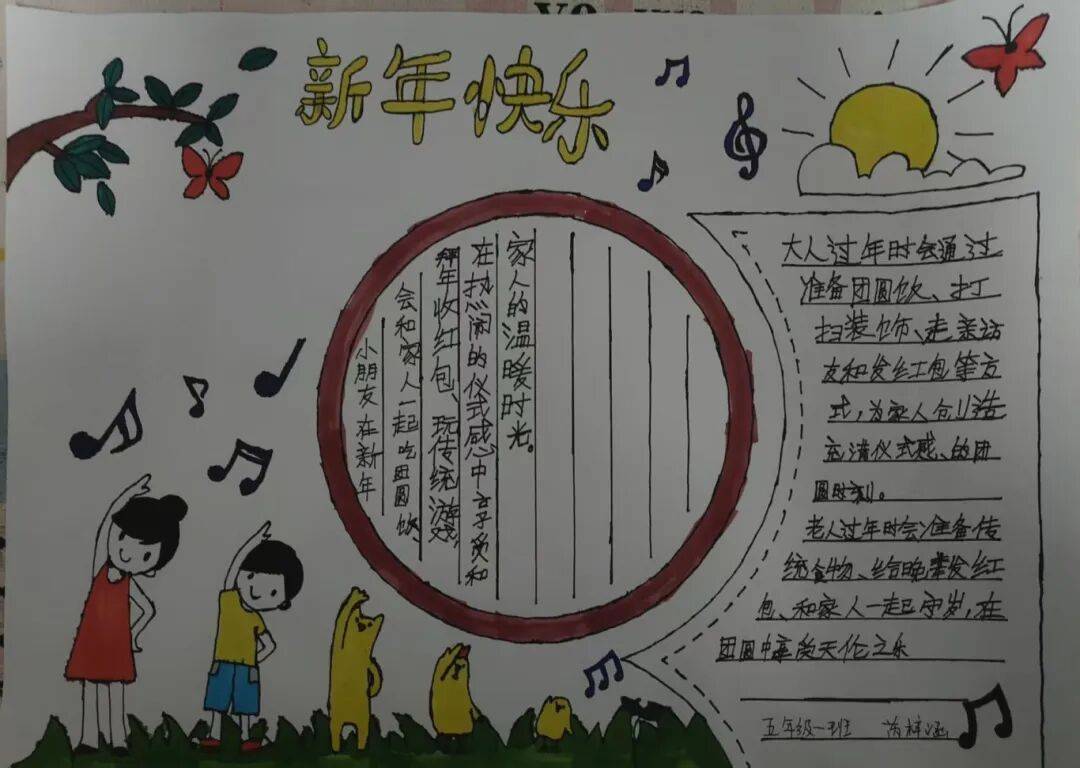 新年快乐
小朋友在新年
会和家人一起吃团圆饮、
拜年收红包、玩传统游戏,
在热闹的仪式感中享受和
家人的温暖时光。
大人过年时会通过
准备团圆饮、打
扫装饰、走亲访
友和发红包等方
式,为家人创造
充满仪式感、的团
圆时刻。
老人过年时会准备传
统食物、给晚辈发红
包、和家人一起守岁,在
团圆中享受天伦之乐
五年级一班 梓涵